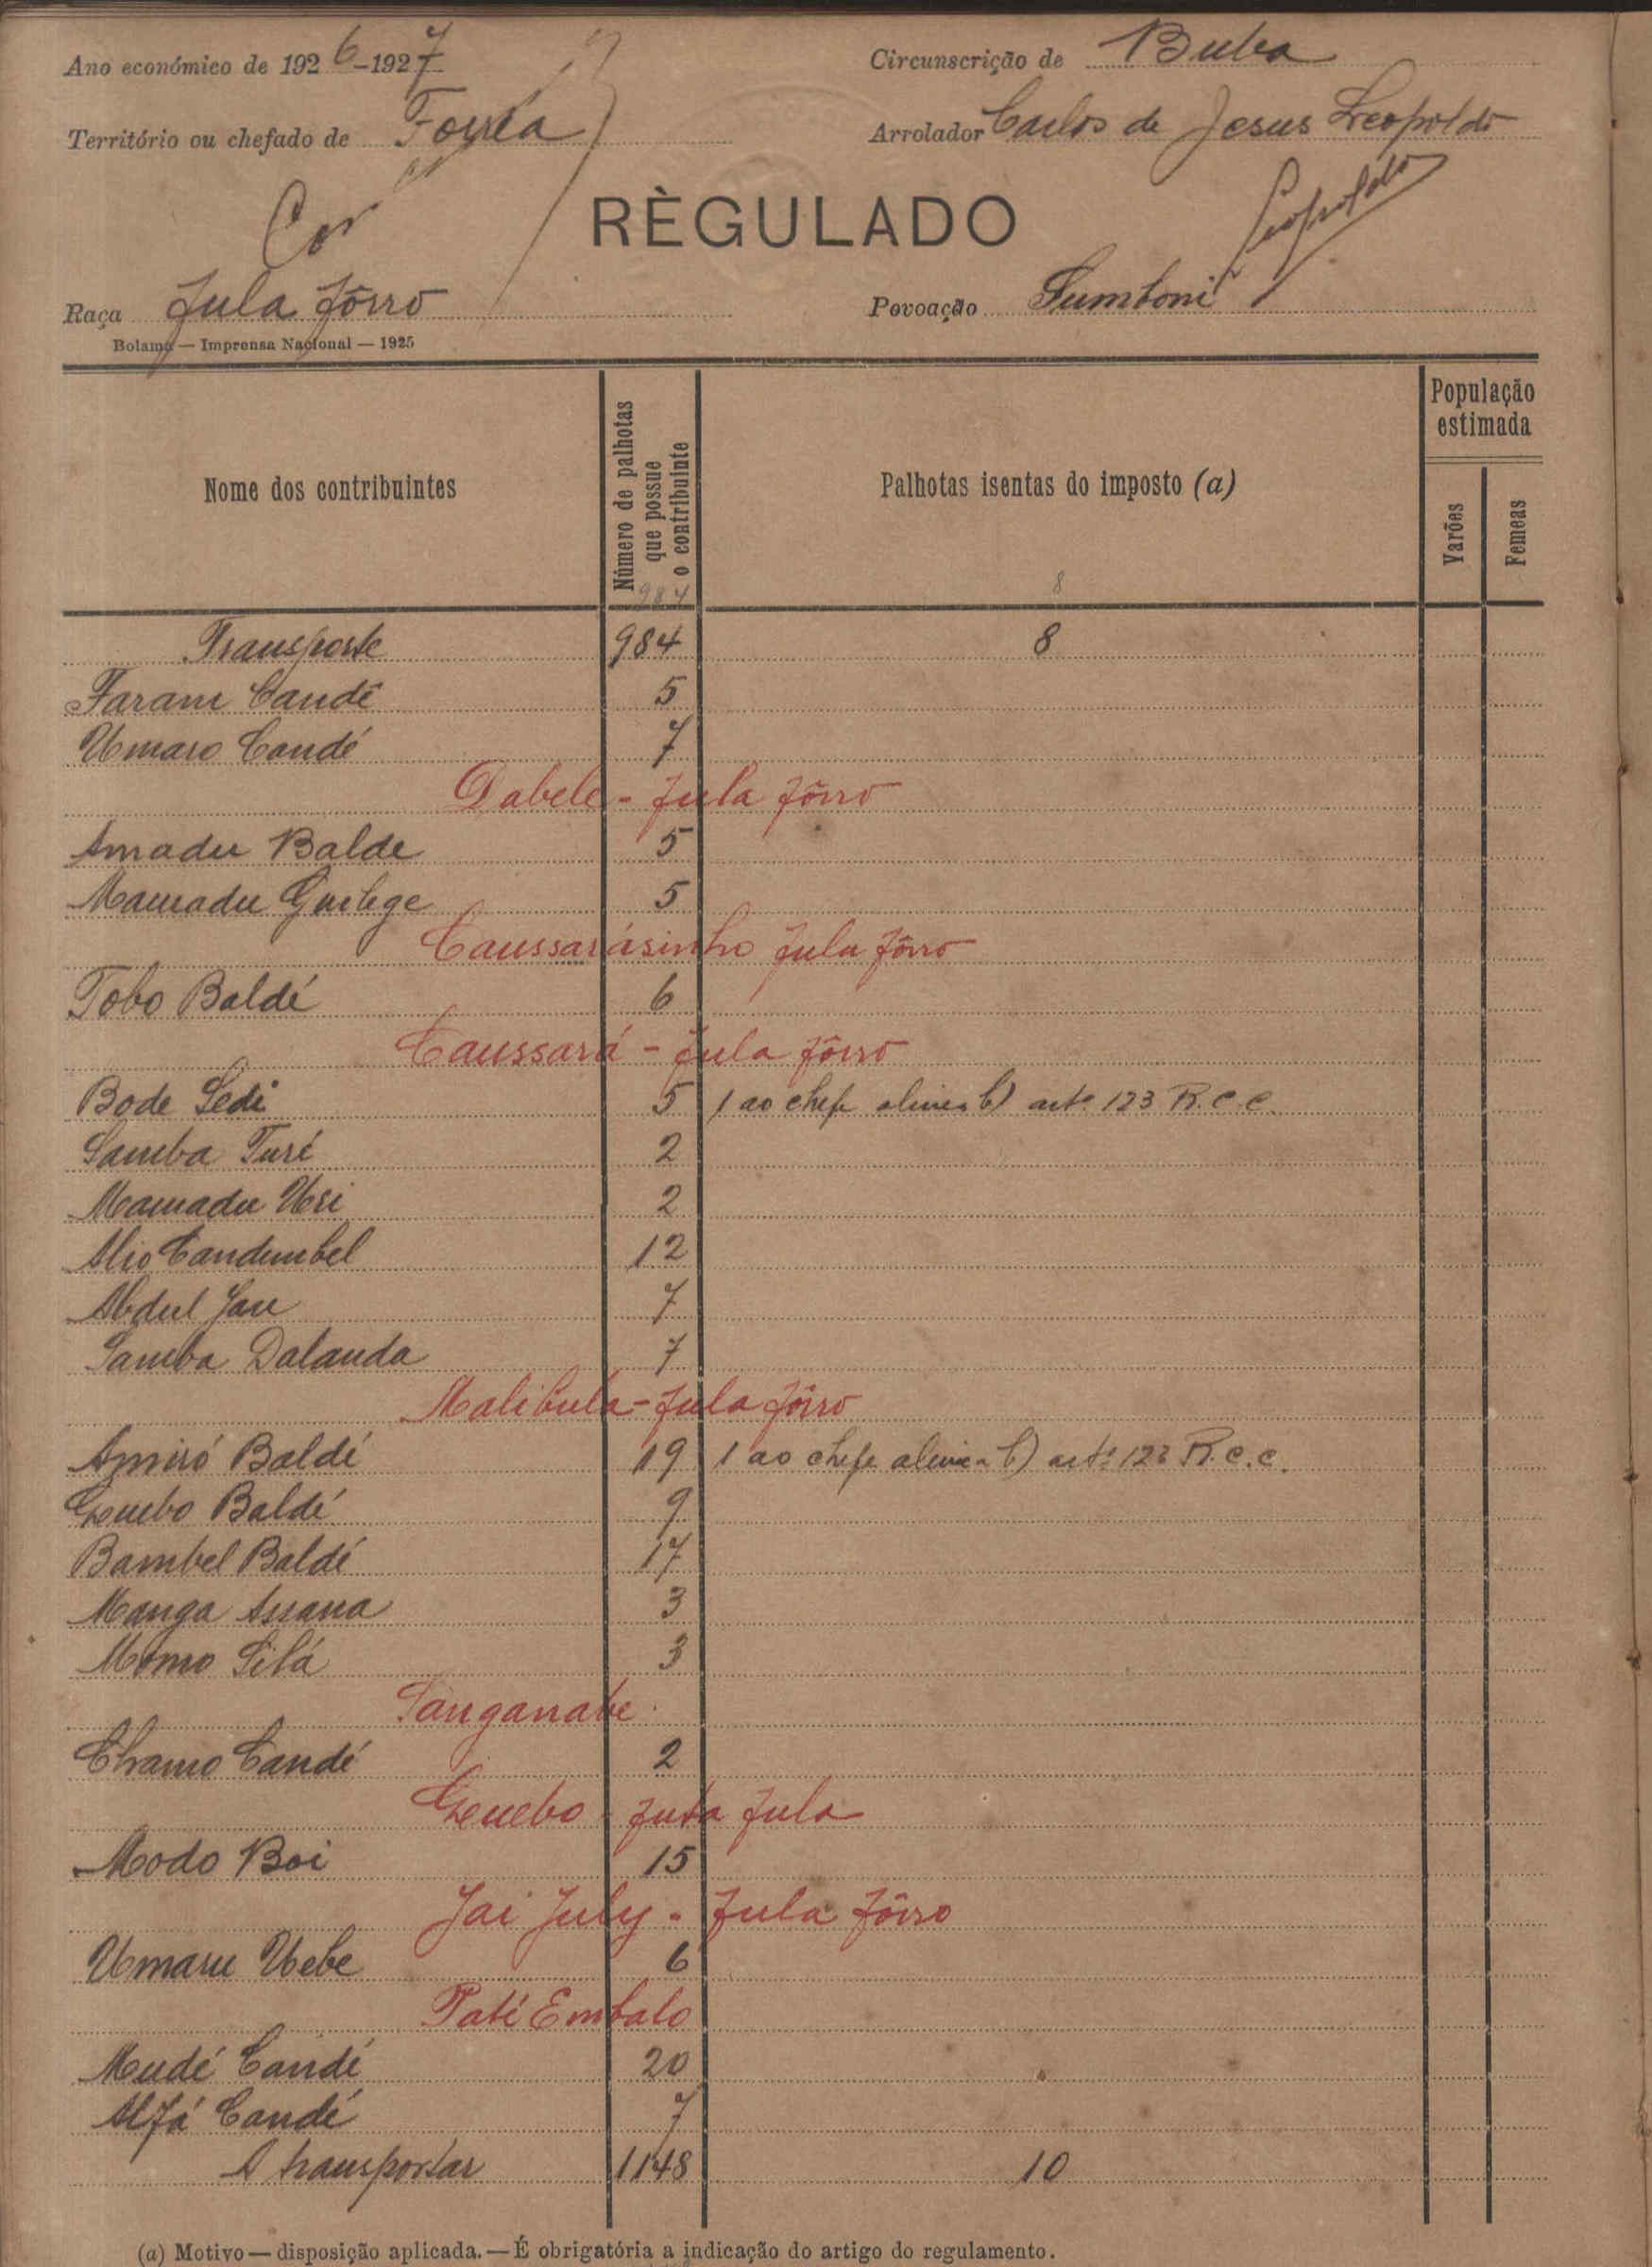 Ano económico de 1926-1927
Circunscrição de Buba
Território ou chefado de Forréa
Arrolador Carlos de Jesus Leopoldo
RÈGULADO
Cor
Leopoldo
Raça Fula fôrro
Povoação Sumboni
Bolama — Imprensa Nacional — 1925
Nome dos contribuintes
Número de palhotas que possue o contribuinte
Palhotas isentas do imposto (a)
População estimada
Varões
Femeas
984 8
Transporte 984 8
Faram Candé 5
Umaro Candé 7
Dabele - fula fôrro
Amadu Balde 5
Mamadu Guilege 5
Caussarásinho fula fôrro
Tobo Baldé 6
Caussará - fula fôrro
Bode Sedi 5 1 ao chefe alinea b) artº 123 R.C.C.
Samba Turé 2
Mamadu Uri 2
Alio Candumbel 12
Abdul Jau 7
Samba Dalanda 7
Malibula - fula fôrro
Amiró Baldé 19 1 ao chefe alinea b) artº 123 R.C.C.
Guebo Baldé 9
Bambel Baldé 17
Manga Assana 3
Momo Silá 3
Sanganabe
Chamo Candé 2
Guebo - futa fula
Modo Boi 15
Jai July - fula fôrro
Umaru Uebe 6
Paté Embalo
Mudé Candé 20
Alfá Candé 7
A transportar 1148 10
(a) Motivo — disposição aplicada. — É obrigatória a indicação do artigo do regulamento.